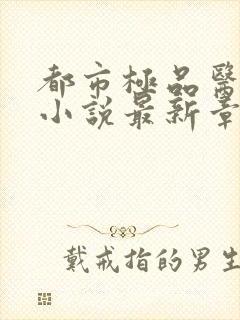 都市極品醫
小說最新章
戴戒指的男生